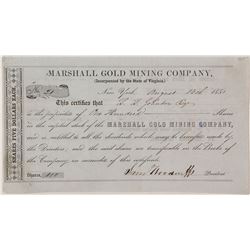 SHARES FIVE DOLLARS EACH.
MARSHALL GOLD MINING COMPANY,
(Incorporated by the State of Virginia.)
No. 21
New York August 1851
This certifies that Johnston Esqr
is the proprietor of One Hundred Shares
in the capital stock of the MARSHALL GOLD MINING COMPANY,
and is entitled to all the dividends which may hereafter be made by
the Directors; and the said shares are transferable on the Books of
the Company, on surrender of this certificate.
Shares, 100 President